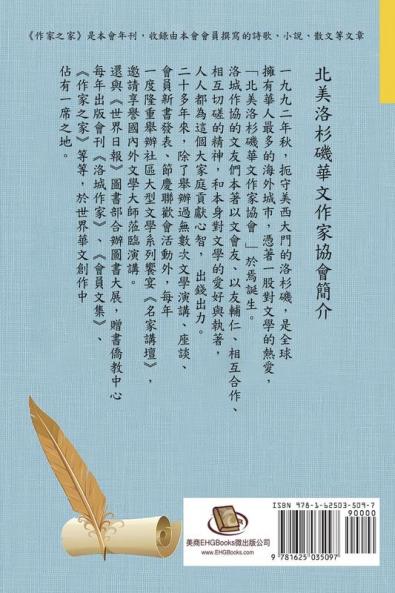 《作家之家》是本會年刊，收錄由本會會員撰寫的詩歌、小說、散文等文章
北美洛杉磯華文作家協會簡介
一九九二年秋，扼守美西大門的洛杉磯，是全球
擁有華人最多的海外城市，憑著一股對文學的熱愛，
「北美洛杉磯華文作家協會」於焉誕生。
洛城作協的文友們本著以文會友、以友輔仁、相互合作、
相互切磋的精神，和本身對文學的愛好與執著，
人人都為這個大家庭貢獻心智，出錢出力。
二十多年來，除了舉辦過無數次文學演講、座談、
會員新書發表、節慶聯歡會活動外，每年
一度隆重舉辦社區大型文學系列饗宴《名家講壇》，
邀請享譽國內外文學大師蒞臨演講。
還與《世界日報》圖書部合辦圖書大展，贈書僑教中心
每年出版會刊《洛城作家》、《會員文集》、
《作家之家》等等，於世界華文創作中
佔有一席之地。
EHGBooks
美商EHGBooks微出版公司
www.EHGBooks.com
ISBN 978-1-62503-509-7
90000
9 781625 035097